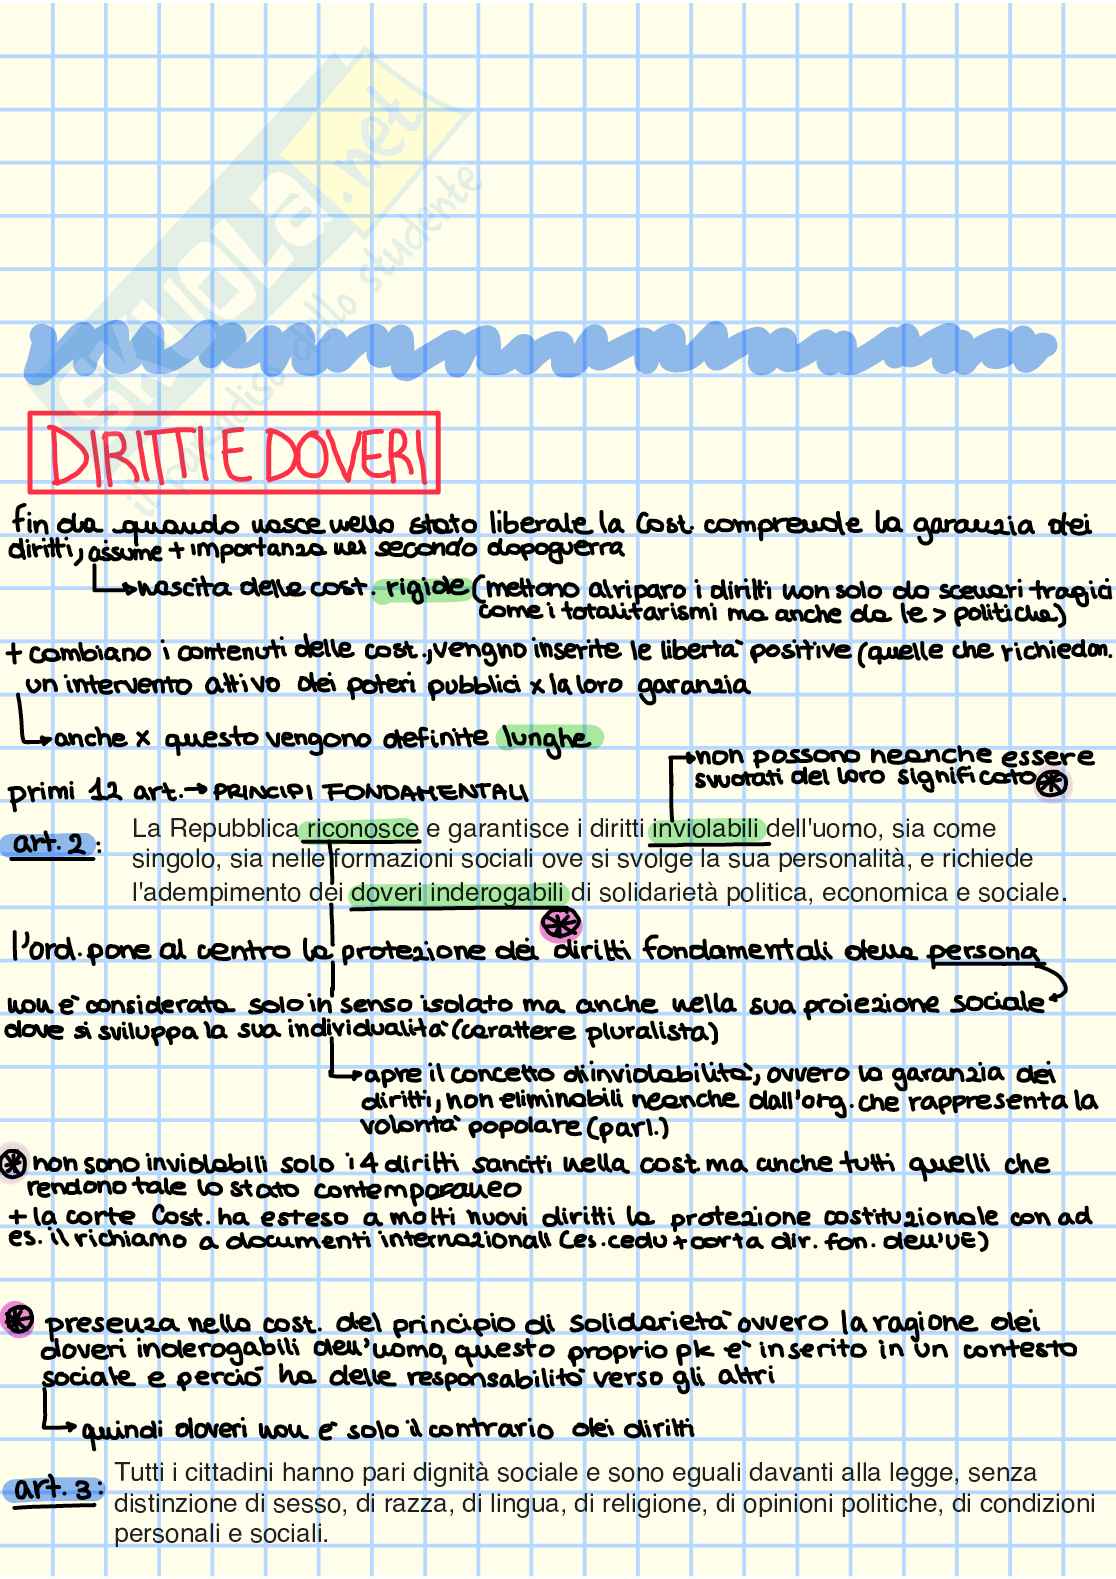 SKUOLA.net
il paradiso dello studente
DIRITTI E DOVERI
fin da quando nasce nello stato liberale la Cost. comprende la garanzia dei
diritti, assume + importanza nel secondo dopoguerra
nascita delle cost. rigide (mettono al riparo i diritti non solo da scenari tragici
come i totalitarismi ma anche da le > politiche)
+ cambiano i contenuti delle cost., vengno inserite le libertà positive (quelle che richiedon.
un intervento attivo dei poteri pubblici x la loro garanzia
anche x questo vengono definite lunghe
non possono neanche essere
svuotati del loro significato ⊛
primi 12 art. → PRINCIPI FONDAMENTALI
art. 2 : La Repubblica riconosce e garantisce i diritti inviolabili dell'uomo, sia come
singolo, sia nelle formazioni sociali ove si svolge la sua personalità, e richiede
l'adempimento dei doveri inderogabili di solidarietà politica, economica e sociale.
⊛
l'ord. pone al centro la protezione dei diritti fondamentali della persona
non è considerata solo in senso isolato ma anche nella sua proiezione sociale
dove si sviluppa la sua individualità (carattere pluralista)
apre il concetto di inviolabilità, ovvero la garanzia dei
diritti, non eliminabili neanche dall'org. che rappresenta la
volontà popolare (parl.)
⊛ non sono inviolabili solo i 4 diritti sanciti nella cost ma anche tutti quelli che
rendono tale lo stato contemporaneo
+ la corte Cost. ha esteso a molti nuovi diritti la protezione costituzionale con ad
es. il richiamo a documenti internazionali (es. cedu + carta dir. fon. dell'UE)
⊛ presenza nella cost. del principio di solidarietà ovvero la ragione dei
doveri inderogabili dell'uomo, questo proprio pk è inserito in un contesto
sociale e perciò ha delle responsabilità verso gli altri
quindi doveri non è solo il contrario dei diritti
art. 3 : Tutti i cittadini hanno pari dignità sociale e sono eguali davanti alla legge, senza
distinzione di sesso, di razza, di lingua, di religione, di opinioni politiche, di condizioni
personali e sociali.